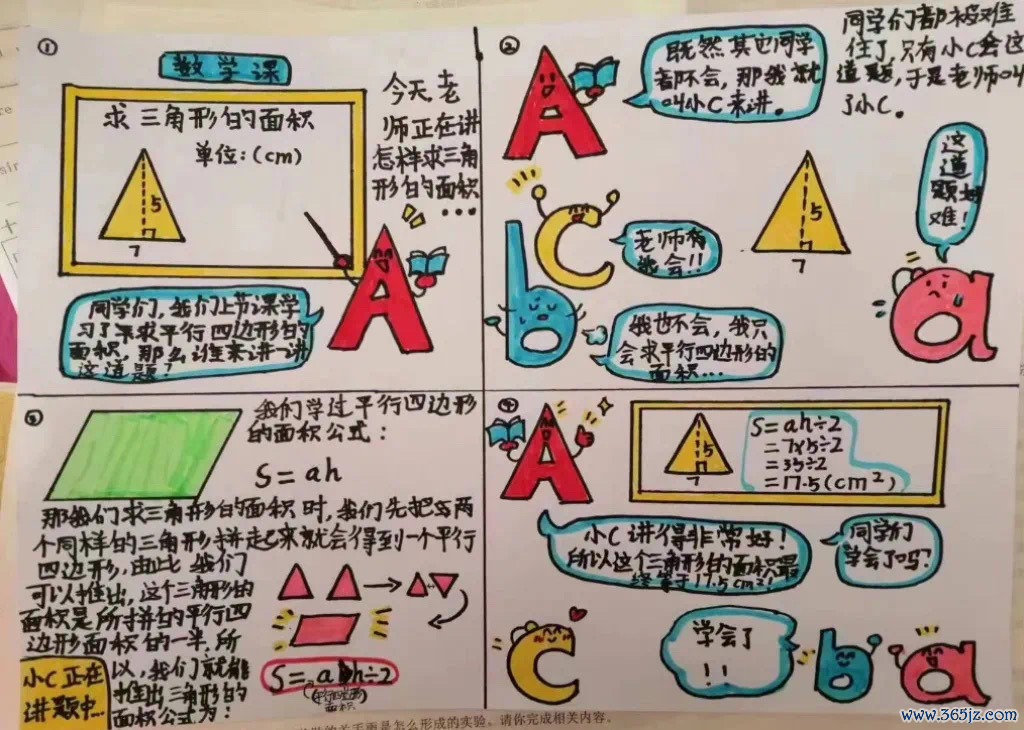 ①
数学课
求三角形的面积
单位:(cm)
5
7
今天老
师正在讲
怎样求三角
形的面积
...
同学们,我们上节课学
习了求平行四边形的
面积,那么谁来讲一讲
这道题?
②
既然其它同学
都不会,那我就
叫小C来讲。
同学们都被难
住了,只有小C会这
道题,于是老师叫
了小C。
这
道
题好
难!
5
7
老师
我会!!
我也不会,我只
会求平行四边形的
面积...
③
我们学过平行四边形
的面积公式:
S=ah
那我们求三角形的面积时,我们先把两
个同样的三角形拼起来就会得到一个平行
四边形,由此我们
可以推出,这个三角形的
面积是所拼的平行四
边形面积的一半,所
以,我们就能
推出三角形的
面积公式为:
小C正在
讲题中...
S=ah÷2
面积
④
5
7
S=ah÷2
=7×5÷2
=35÷2
=17.5(cm²)
小C讲得非常好!
所以这个三角形的面积最
终等于17.5cm²!
同学们
学会了吗?
学会了
!!
怎么形成的实验。请你完成相关内容。
www.365jz.com